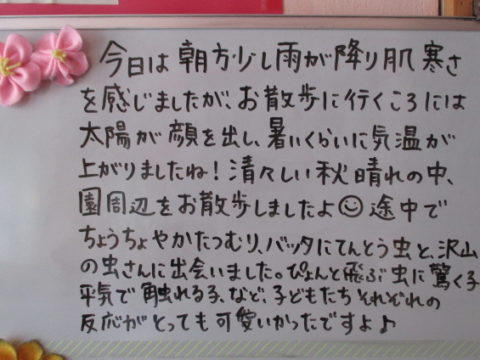 今日は朝方少し雨が降り肌寒さ
を感じましたが、お散歩に行くころには
太陽が顔を出し、暑いくらいに気温が
上がりましたね！清々しい秋晴れの中、
園周辺をお散歩しましたよ☺途中で
ちょうちょやかたつむり、バッタにてんとう虫と、沢山
の虫さんに出会いました。ぴょんと飛ぶ虫に驚く子
平気で触れる子、など、子どもたちそれぞれの
反応がとっても可愛いかったですよ♪